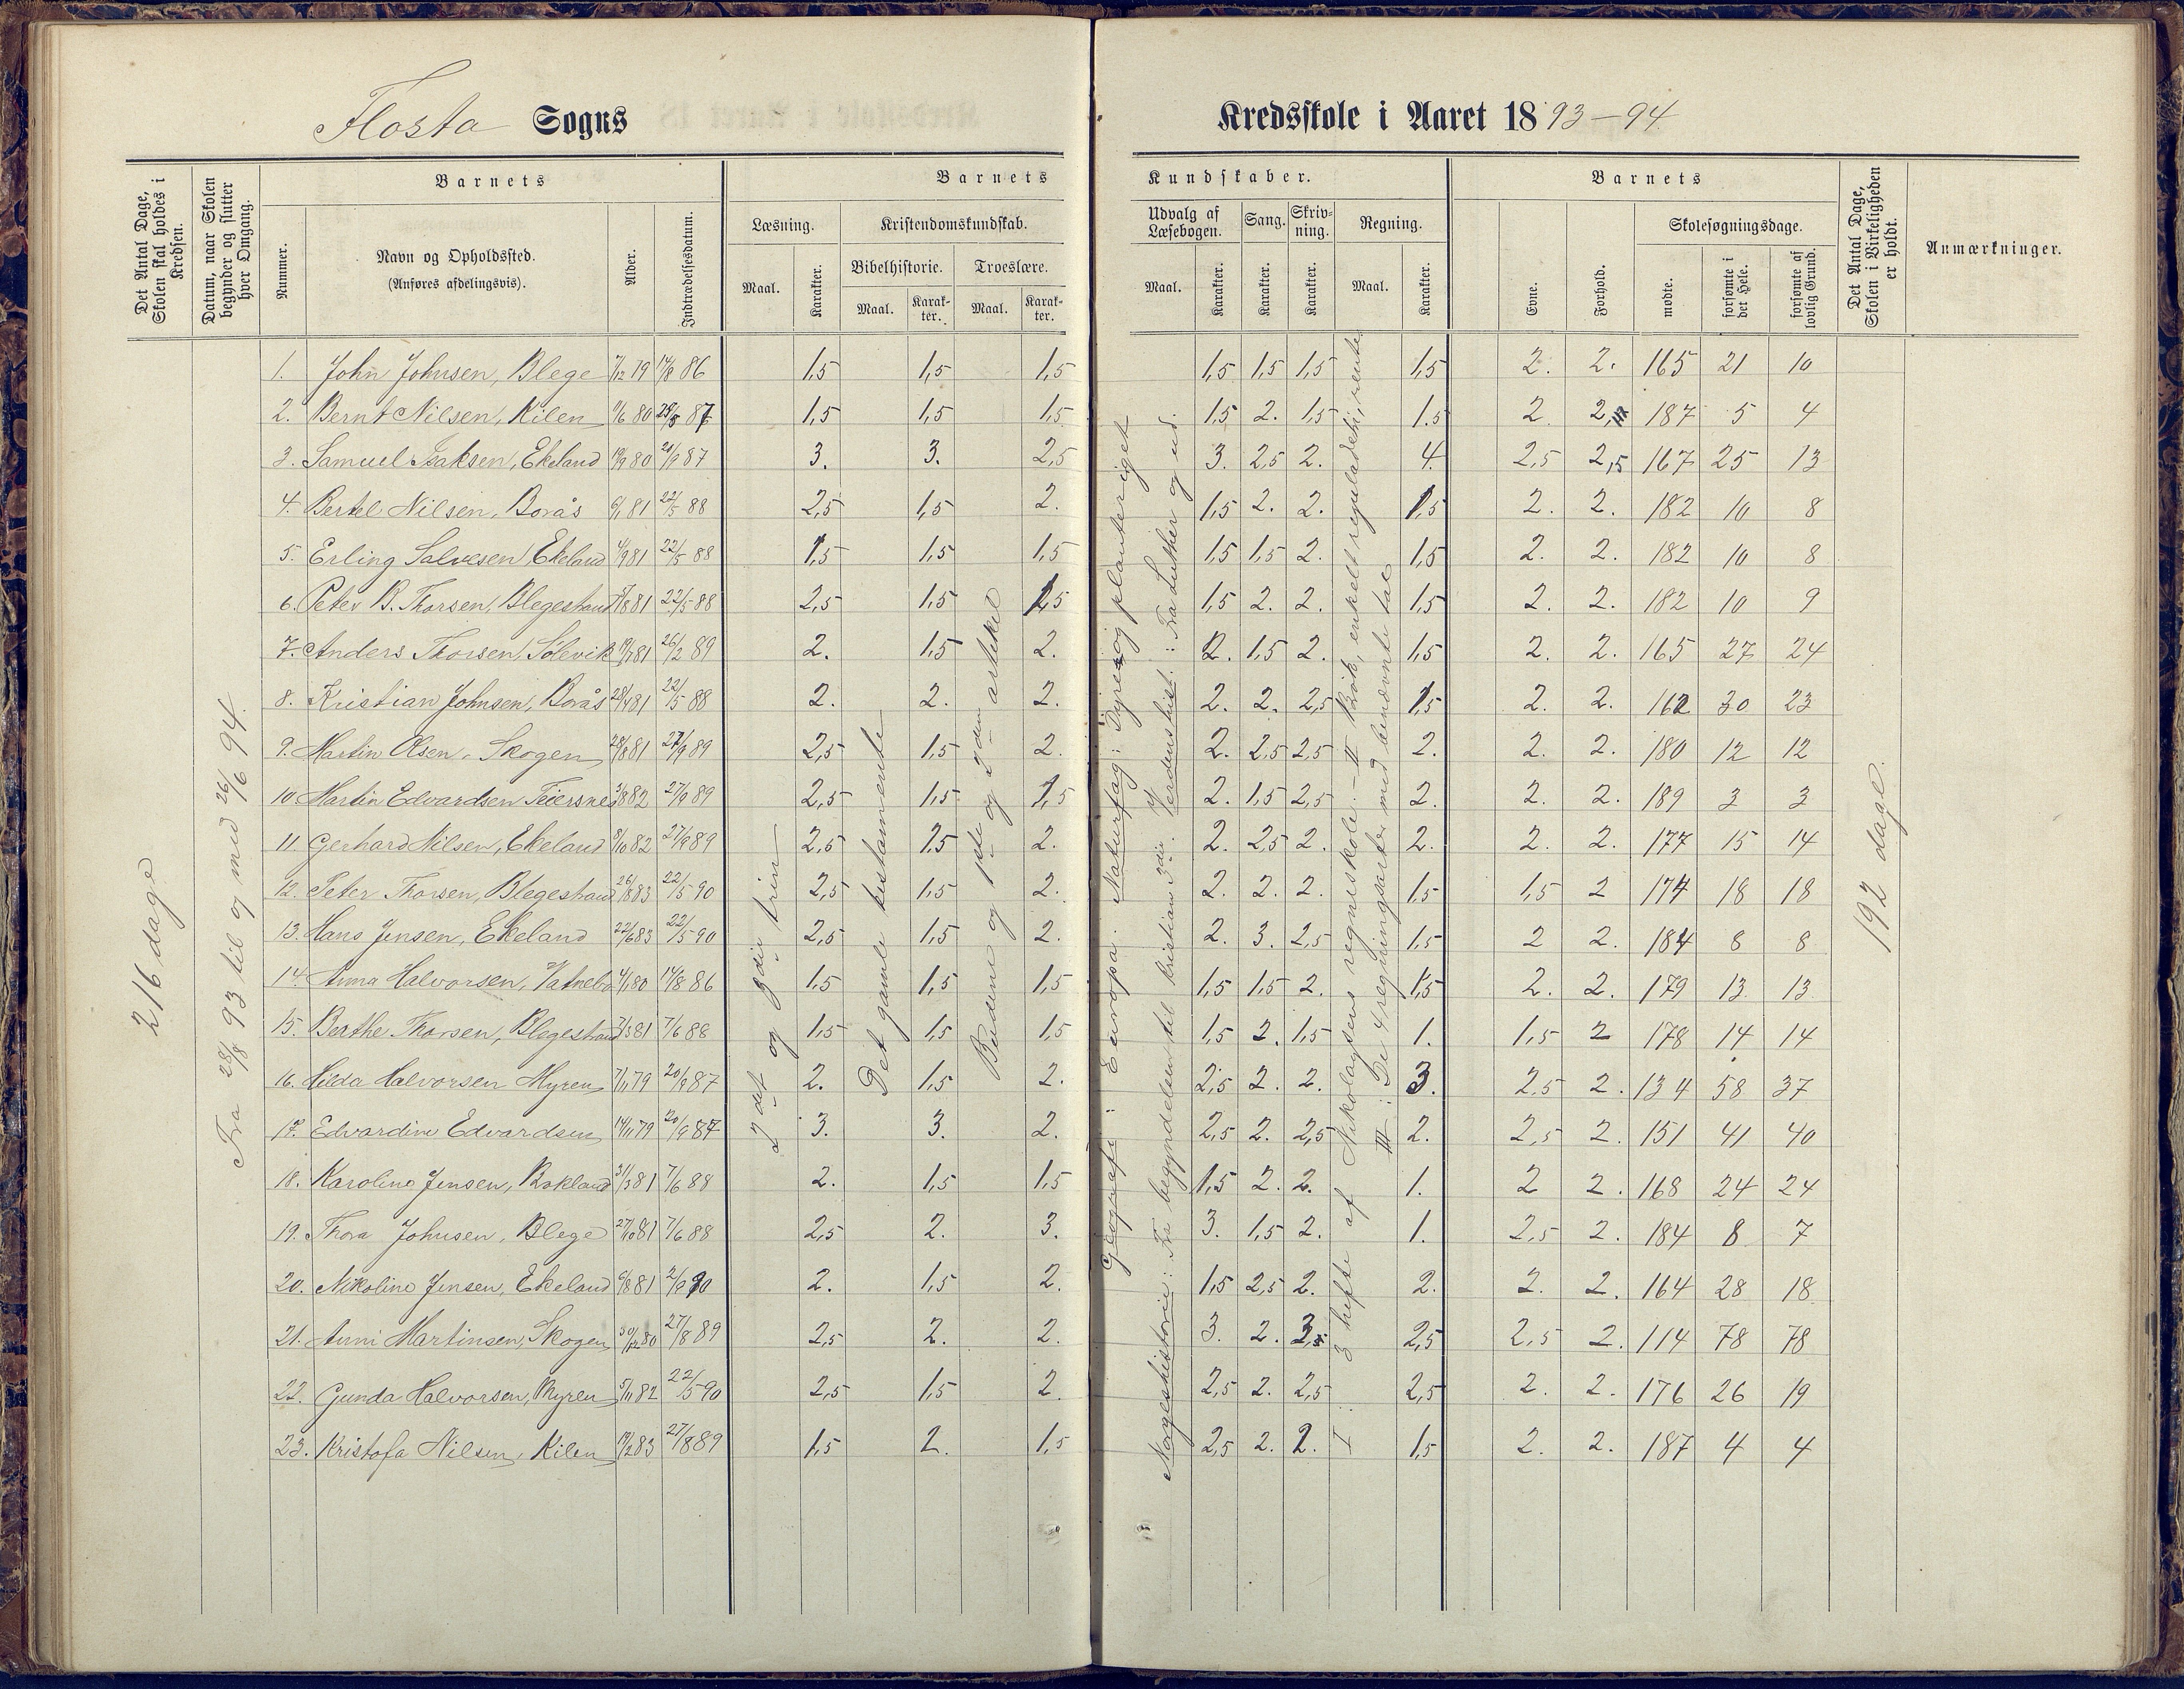 Flosta Sogns
Kredsskole i Aaret 1893-94.
Det Antal Dage, Skolen skal holdes i Kredsen.
Datum, naar Skolen begynder og slutter hver Omgang.
Barnets
Nummer.
Navn og Opholdssted.
(Anføres afdelingsvis).
Alder.
Indtrædelsesdatum.
Barnets
Kundskaber.
Læsning.
Maal.
Karakter.
Kristendomskundskab.
Bibelhistorie.
Maal.
Karakter.
Troeslære.
Maal.
Karakter.
Udvalg af Læsebogen.
Maal.
Karakter.
Sang.
Karakter.
Skrivning.
Karakter.
Regning.
Maal.
Karakter.
Barnets
Evne.
Forhold.
Skolesøgningsdage.
mødte.
forsømte i det Hele.
forsømte af lovlig Grund.
Det Antal Dage, Skolen i Virkeligheden er holdt.
Anmærkninger.
216 dage
Fra 28/8 93 til og med 26/6 94.
2det og 3die trin
Det gamle testamente
Budene og 1ste og 2den artikel
Geografi: Europa. Naturfag: Dyre- og planteriget
Norgeshistorie: Fra begyndelsen til Kristian 3die. Verdenshist.: Fra Luther og ud.
I: 3 hefte af Nikolaysens regneskole. – II Brøk, enkelt reguladetri, rente
III: De 4 regningsarter med benævnte tal
192 dage.
1. John Johnsen, Blege 7/12 79 14/8 86 1,5 1,5 1,5 1,5 1,5 1,5 1,5 2. 2. 165 21 10
2. Bernt Nilsen, Kilen 11/6 80 25/5 87 1,5 1,5 1,5 1,5 2. 1,5 1.5 2 2, 187 5 4
3. Samuel Isaksen, Ekeland 19/9 80 20/9 87 3. 3. 2,5 3. 2,5 2. 4. 2,5 2,5 167 25 13
4. Bertel Nilsen, Borås 6/1 81 22/5 88 2,5 1,5 2. 1,5 2. 2. 1,5 2. 2. 182 10 8
5. Erling Salvesen, Ekeland 4/9 81 22/5 88 1,5 1,5 1,5 1,5 1,5 2. 1,5 2. 2. 182 10 8
6. Peter B. Thorsen, Blegestrand /8 81 22/5 88 2,5 1,5 1,5 1,5 2. 2. 1,5 2. 2. 182 10 9
7. Anders Thorsen, Solevik 19/7 81 26/2 89 2. 1,5 2. 2. 1,5 2. 1,5 2. 2. 165 27 24
8. Kristian Johnsen, Borås 28/4 81 22/5 88 2. 2. 2. 2. 2. 2,5 1,5 2. 2. 162 30 23
9. Martin Olsen, Skogen 28/8 81 27/9 89 2,5 1,5 2. 2. 2,5 2,5 2. 2. 2. 180 12 12
10. Martin Edvardsen 3/8 82 27/9 89 2,5 1,5 1,5 2. 1,5 2,5 2. 2. 2. 189 3 3
11. Gerhard Nilsen, Ekeland 8/10 82 27/9 89 2,5 1.5 2. 2. 2,5 2. 2. 2. 2. 177 15 14
12. Peter Thorsen, Blegestrand 26/8 83 22/5 90 2,5 1,5 2. 2. 2. 2. 1,5 1,5 2 174 18 18
13. Hans Jensen, Ekeland 22/6 83 22/5 90 2,5 1,5 2. 2. 3. 2,5 1,5 2 2. 184 8 8
14. Anna Halvorsen, Vatnebo 4/1 80 14/8 86 1,5 1,5 1,5 1,5 1,5 2. 1,5 2. 2. 179 13 13
15. Berthe Thorsen, Blegestrand 7/3 81 7/6 88 1,5 1,5 1,5 1,5 2. 1,5 1. 1,5 2 178 14 14
16. Hilda Halvorsen Myren 7/11 79 20/9 87 2. 1,5 2. 2,5 2. 2. 3. 2,5 2. 134 58 37
17. Edvardine Edvardsen 14/11 79 20/9 87 3. 3. 2. 2,5 2. 2,5 2. 2,5 2. 151 41 40
18. Karoline Jensen, Bokland 31/3 81 7/6 88 2. 1,5 1,5 1,5 2. 2. 1. 2 2. 168 24 24
19. Thora Johnsen, Blege 27/10 81 7/6 88 2,5 2. 3. 3. 1,5 2. 1. 2,5 2. 184 8 7
20. Nikoline Jensen, Ekeland 6/8 81 2/9 90 2. 1,5 2. 1,5 2,5 2. 2. 2. 2. 164 28 18
21. Anni Martinsen, Skogen 30/12 80 27/8 89 2,5 2. 2. 3. 2. 3,5 2,5 2,5 2. 114 78 78
22. Gunda Halvorsen, Myren 5/11 82 22/5 90 2,5 1,5 2. 2,5 2. 2,5 2,5 2. 2. 176 26 19
23. Kristofa Nilsen, Kilen 19/2 83 27/8 89 1,5 2. 1,5 2,5 2. 2. 1,5 2. 2. 187 4 4